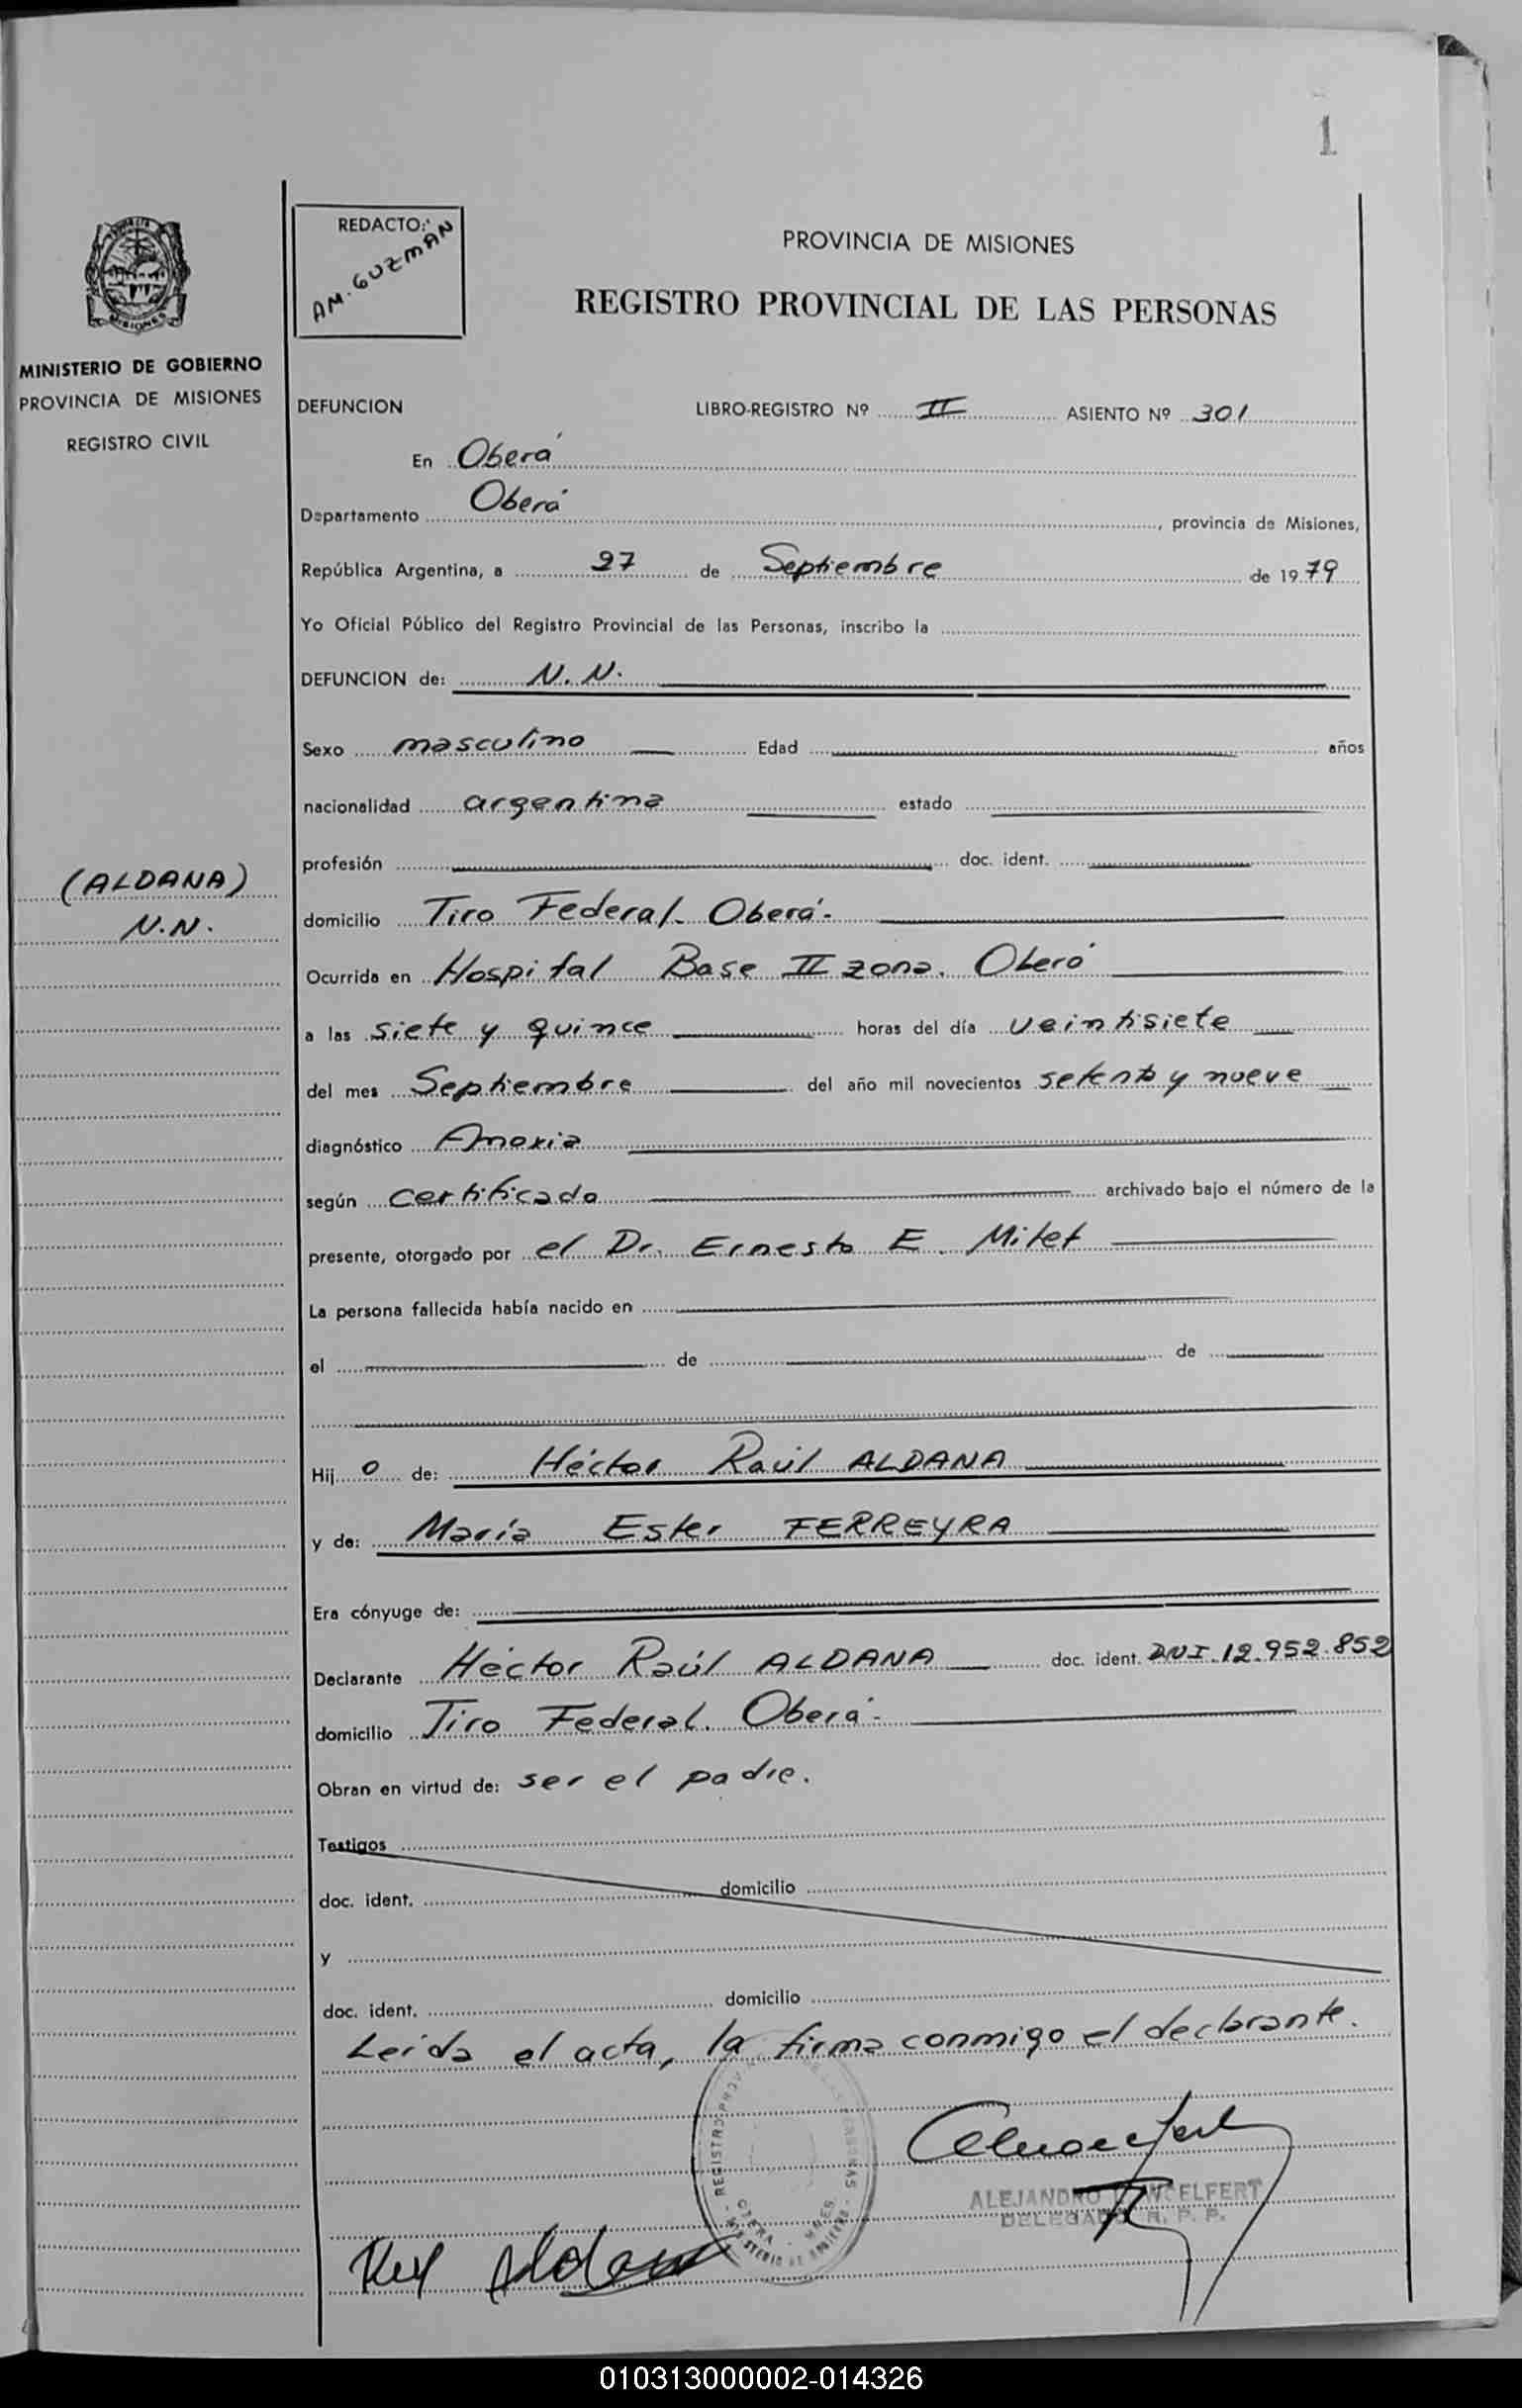 1
REDACTO:
AM. GUZMAN
PROVINCIA DE MISIONES
REGISTRO PROVINCIAL DE LAS PERSONAS
MISIONES
MINISTERIO DE GOBIERNO
PROVINCIA DE MISIONES
REGISTRO CIVIL
DEFUNCION LIBRO-REGISTRO Nº II ASIENTO Nº 301
En Oberá
Departamento Oberá, provincia de Misiones,
República Argentina, a 27 de Septiembre de 1979
Yo Oficial Público del Registro Provincial de las Personas, inscribo la
DEFUNCION de: N. N.
Sexo masculino Edad años
nacionalidad argentina estado
profesión doc. ident.
(ALDANA)
N.N.
domicilio Tiro Federal. Oberá.
Ocurrida en Hospital Base II zona. Oberá
a las siete y quince horas del día veintisiete
del mes Septiembre del año mil novecientos setenta y nueve
diagnóstico Anoxia
según certificado archivado bajo el número de la
presente, otorgado por el Dr. Ernesto E. Milet
La persona fallecida había nacido en
el de de
Hij o de: Héctor Raúl ALDANA
y de: María Ester FERREYRA
Era cónyuge de:
Declarante Héctor Raúl ALDANA doc. ident. DNI. 12.952.852
domicilio Tiro Federal. Oberá.
Obran en virtud de: ser el padre.
Testigos
doc. ident. domicilio
y
doc. ident. domicilio
Leída el acta, la firma conmigo el declarante.
ALEJANDRO
DELEGADO R. P. P.
Aldana
010313000002-014326